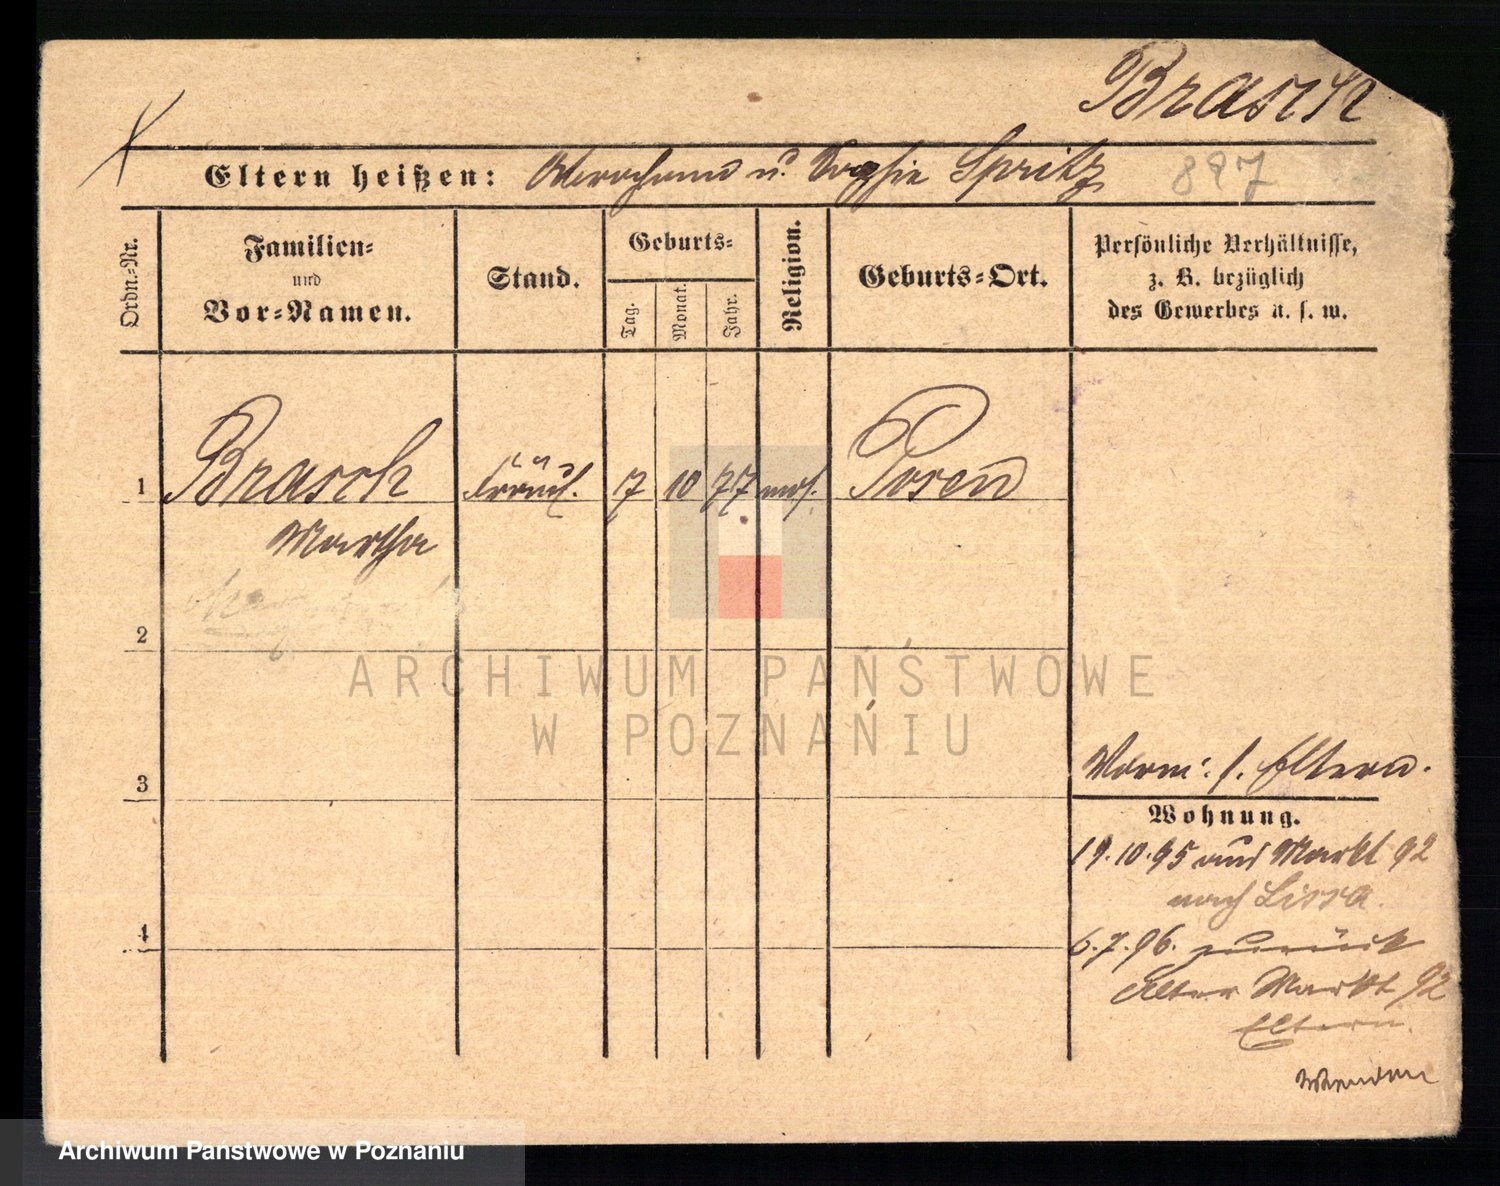 Brasch
Eltern heißen: Abraham u. Sophie Spritz
887
Ordn.-Nr.
Familien-
und
Vor-Namen.
Stand.
Geburts-
Tag.
Monat.
Jahr.
Religion.
Geburts-Ort.
Persönliche Verhältnisse,
z. B. bezüglich
des Gewerbes u. s. w.
1 Brasch Fräul. 7 10 77 mos. Posen
Martha
2
3
Vorm: s. Eltern.
Wohnung.
19.10.95 aus Markt 92
nach Lissa.
4
6.7.96. zurück
Alter Markt 92
Eltern.
Wenden
ARCHIWUM PAŃSTWOWE
W POZNANIU
Archiwum Państwowe w Poznaniu